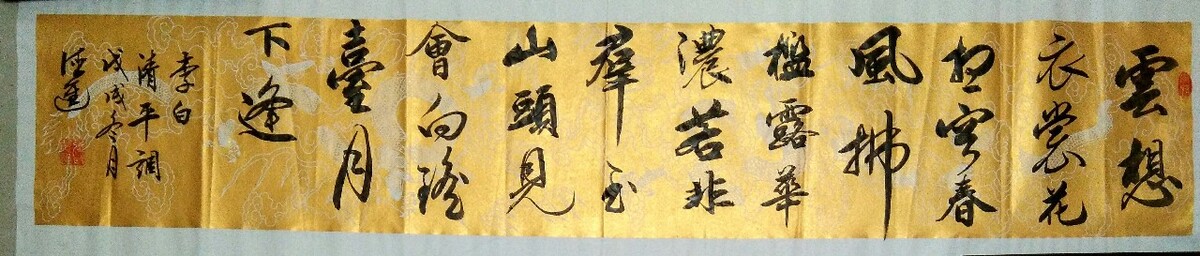 雲想
衣裳花
想容春
風拂
檻露華
濃若非
羣玉
山頭見
會向瑤
臺月
下逢
李白
清平調
戊戌冬月